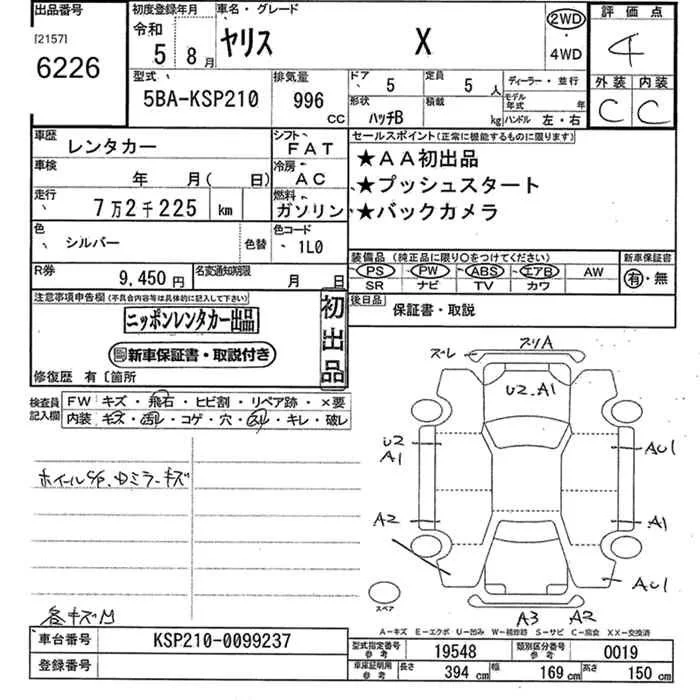 出品番号 初度登録年月 車名・グレード 評価点
[2157] 令和 ヤリス X 2WD 4
6226 5 8月 4WD
型式 排気量 ドア 5 定員 5人 ディーラー・並行 外装 内装
5BA-KSP210 996 CC 形状 ハッチB 積載 kg モデル年式 年 ハンドル 左・右 C C
車歴 レンタカー シフト FAT セールスポイント(正常に機能するものに限ります)
車検 年 月( 日) 冷房 AC ★AA初出品
走行 7万2千225 km 燃料 ガソリン ★プッシュスタート
★バックカメラ
色 シルバー 色替 色コード 1L0
装備品 (純正品に限り○をつけてください) 新車保証書
R券 9,450円 名変通知期限 月 日 PS PW ABS エアB AW 有・無
SR ナビ TV カワ
注意事項申告欄(不具合内容等は具体的に記入して下さい) 初出品 後日品 保証書・取説
ニッポンレンタカー出品
新車保証書・取説付き
修復歴 有〔箇所
検査員記入欄 FW キズ・飛石・ヒビ割・リペア跡・×要
内装 キズ・汚レ・コゲ・穴・凹ル・キレ・破レ
ズレ スリA
U2.A1
U2 A1 AU1
ホイールC/P、Dミラーキズ
A2 A1
AU1
スペア
各キズM A3 A2
A-キズ E-エクボ U-凹み W-補修跡 S-サビ C-腐食 XX-交換済
車台番号 KSP210-0099237 型式指定番号 参考 19548 類別区分番号 参考 0019
登録番号 車庫証明用 参考 長さ 394 cm 幅 169 cm 高さ 150 cm